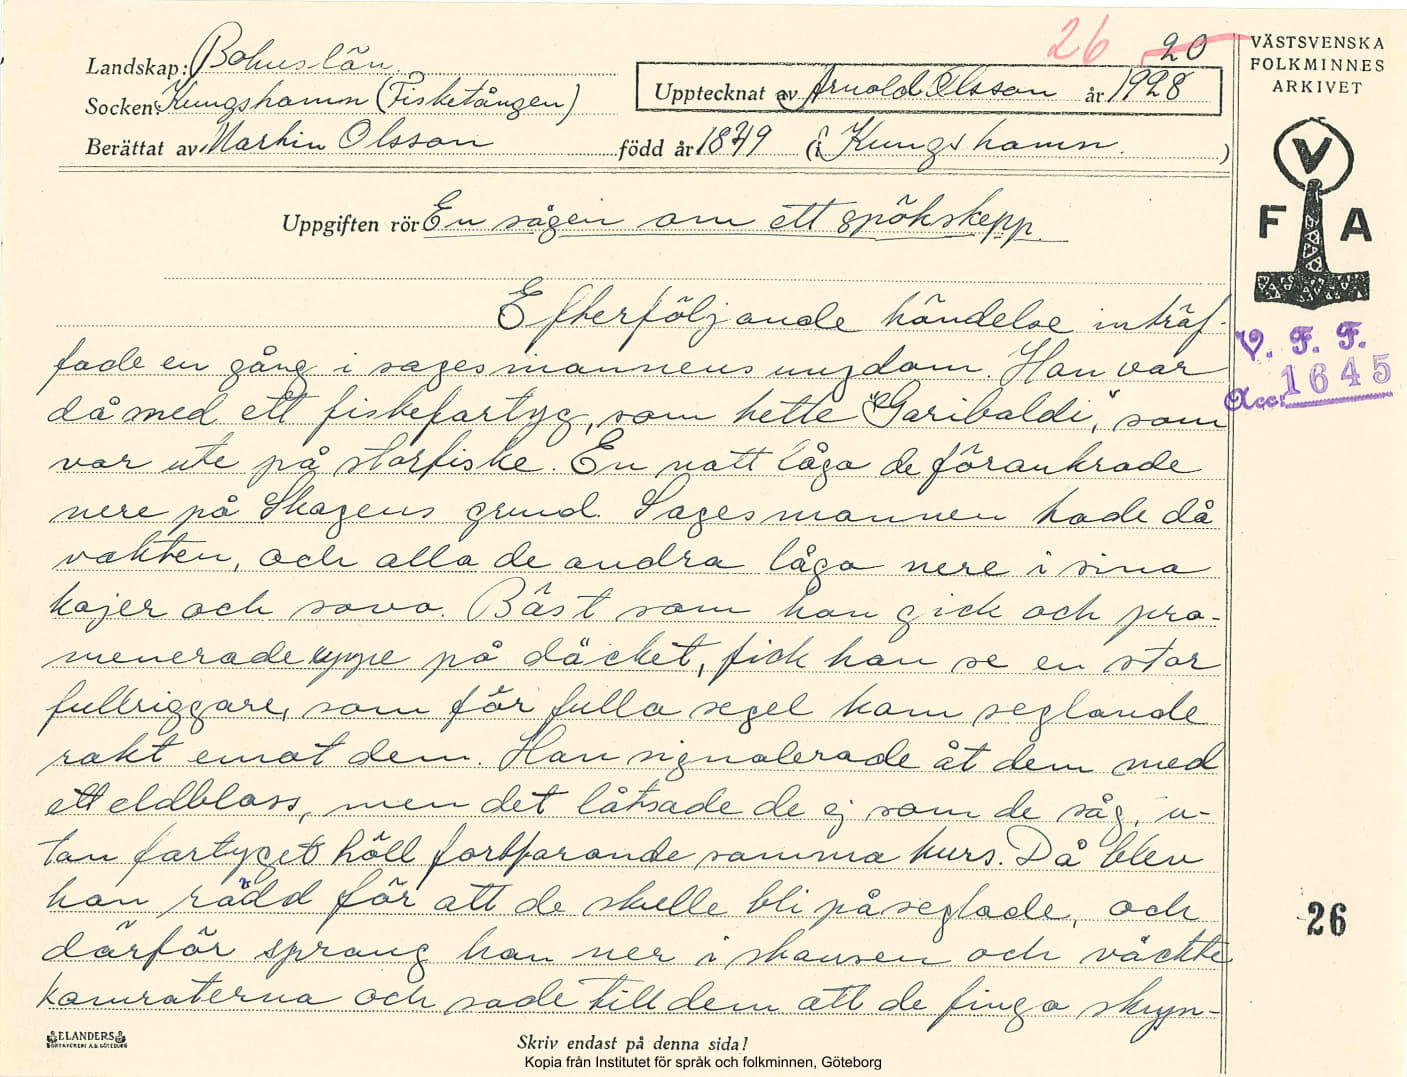 26 20
Landskap: Bohuslän
Socken: Kungshamn (Fisketången)
Upptecknat av Arnold Olsson år 1928
Berättat av Martin Olsson född år 1849 (i Kungshamn.)
VÄSTSVENSKA
FOLKMINNES
ARKIVET
V
F A
Uppgiften rör En sägen om ett spökskepp.
V. F. F.
Acc: 1645
Efterföljande händelse inträf-
fade en gång i sagesmannens ungdom. Han var
då med ett fiskefartyg, som hette "Garibaldi", som
var ute på storfiske. En natt låga de förankrade
nere på Skagens grund. Sagesmannen hade då
vakten, och alla de andra låga nere i sina
kojer och sova. Bäst som han gick och pro-
menerade uppe på däcket, fick han se en stor
fullriggare, som för fulla segel kom seglande
rakt emot dem. Han signalerade åt dem med
ett eldbloss, men det låtsade de ej som de såg, u-
tan fartyget höll fortfarande samma kurs. Då blev
han rädd för att de skulle bli påseglade, och
därför sprang han ner i skansen och väckte
kamraterna och sade till dem att de finga skyn-
26
ELANDERS
BOKTRYCKERI A.B. GÖTEBORG
Skriv endast på denna sida!
Kopia från Institutet för språk och folkminnen, Göteborg